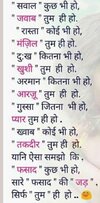 सवाल " कुछ भी हो,
" जवाब " तुम ही हो.
" रास्ता " कोई भी हो,
" मंज़िल " तुम ही हो.
" दु:ख " कितना भी हो,
" खुशी " तुम ही हो.
" अरमान " कितना भी हो,
" आरजू " तुम ही हो.
" गुस्सा " जितना भी हो,
प्यार तुम ही हो .
" ख्वाब " कोई भी हो,
" तकदीर " तुम ही हो.
यानि ऐसा समझो कि ,
" फसाद " कुछ भी हो,
सारे " फसाद " की " जड़ " ,
सिर्फ " तुम " ही हो ..